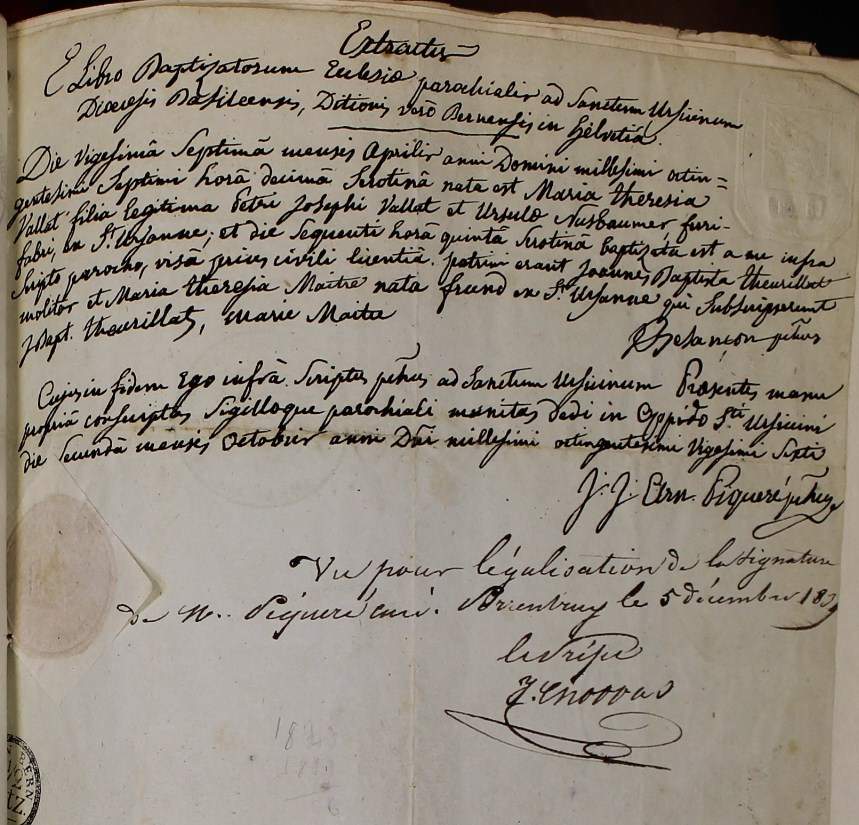 Extractus
E Libro Baptizatorum Eclesiæ parochialis ad Sanctum Ursicinum
Diocesis Basileensis, Ditionis verò Bernensis in helvetiâ.
Die Vigesimâ Septimâ mensis Aprilis anni Domini millesimi octin=
gentesimi Septimi horâ decimâ Serotinâ nata est Maria theresia
Vallat filia legitima Petri Josephi Vallat et Ursulæ Nusbaumer ferri-
fabri, en St. Ursanne; et die Sequente horâ quintâ Serotinâ baptizata est a me infra
Scripto parocho, visâ prius civili licentiâ. patrini erant Joannes Baptista theurillat
molitor et Maria theresia Maitre nata freund en St. Ursanne qui Subscripserunt
J Bapt. theurillat, marie Maitre
Besançon p̄chus
Cujus in fidem Ego infrâ Scriptus p̄chus ad Sanctum Ursicinum Præsentes manu
propriâ conscriptas Sigilloque parochiali munitas dedi in Oppido Sti. Ursicini
die Secundâ mensis Octobris anni Dni millesimi octingentesimi Vigesimi Sexti
J. J. Ern. Piqueré p̄chus
Vu pour légalisation de la signature
de M. Piqueré curé. Porrentruy le 5 décembre 182
le Préfet
BERN